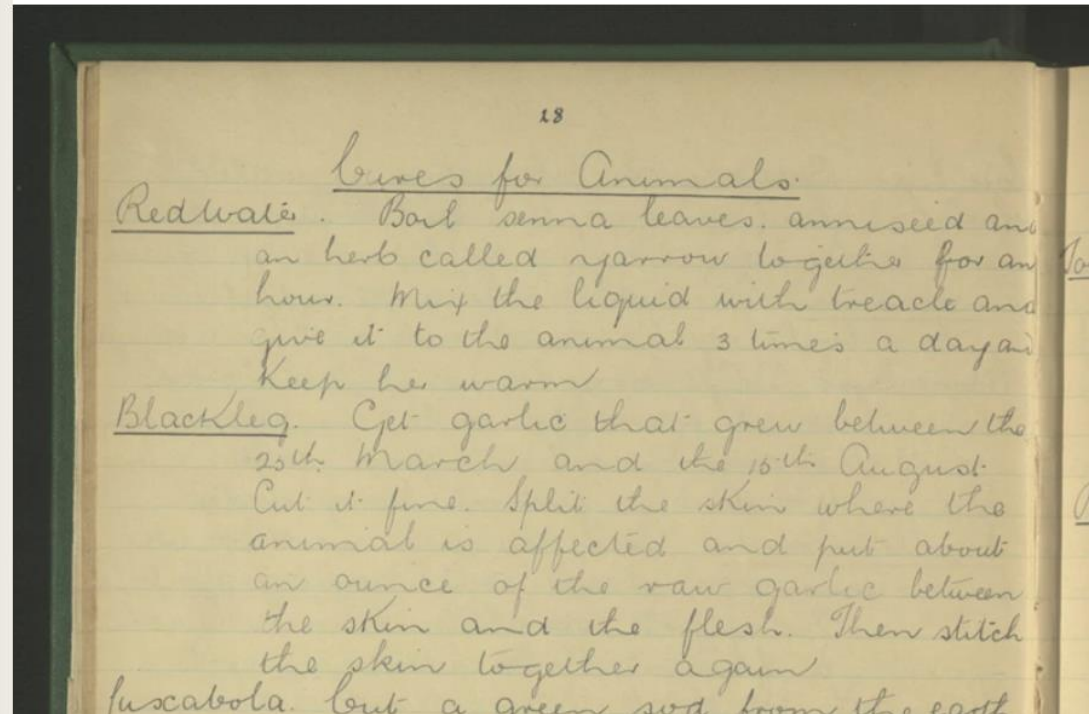 28
Cures for Animals.
Redwater. Boil senna leaves. anniseed and
an herb called yarrow together for an
hour. Mix the liquid with treacle and
give it to the animal 3 times a day and
Keep her warm
Blackleg. Get garlic that grew between the
25th March and the 15th August.
Cut it fine. Split the skin where the
animal is affected and put about
an ounce of the raw garlic between
the skin and the flesh. Then stitch
the skin together again
Cut a green sod from the earth